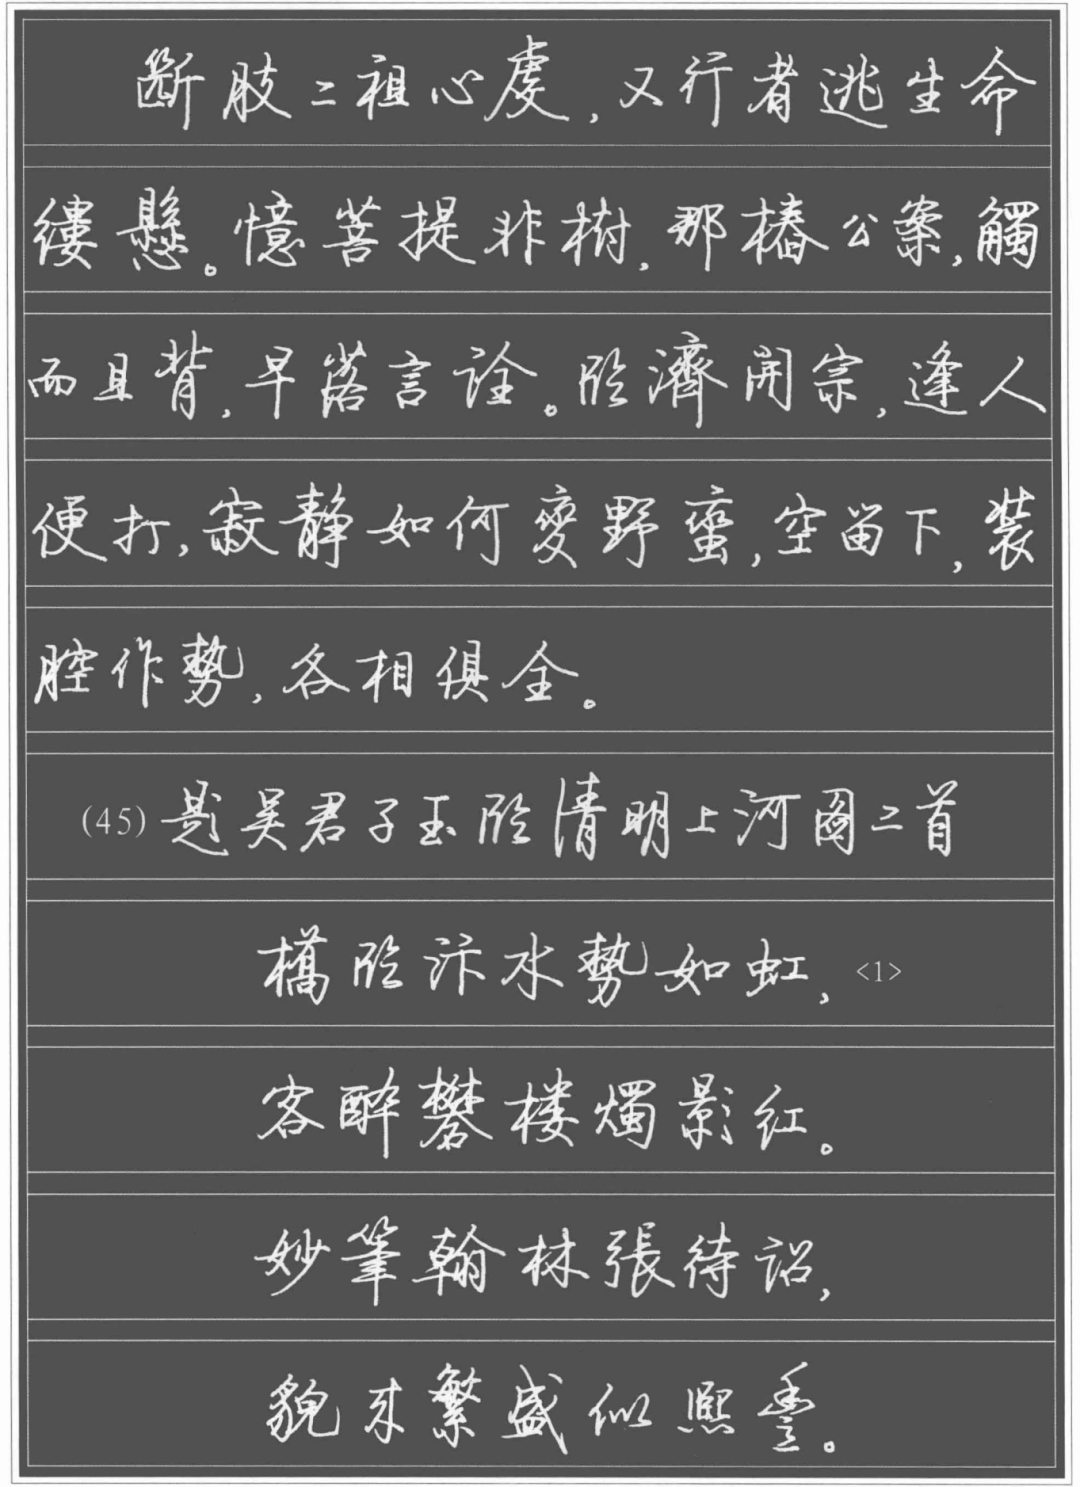 斷肢二祖心虔，又行者逃生命
縷懸。憶菩提非樹，那樁公案，觸
而且背，早落言詮。臨濟開宗，逢人
便打，寂靜如何變野蠻，空留下，裝
腔作勢，各相俱全。
(45) 題吴君子玉臨清明上河圖二首
橋臨汴水勢如虹，<1>
客醉礬楼燭影紅。
妙筆翰林張待詔，
貌来繁盛似熙豐。